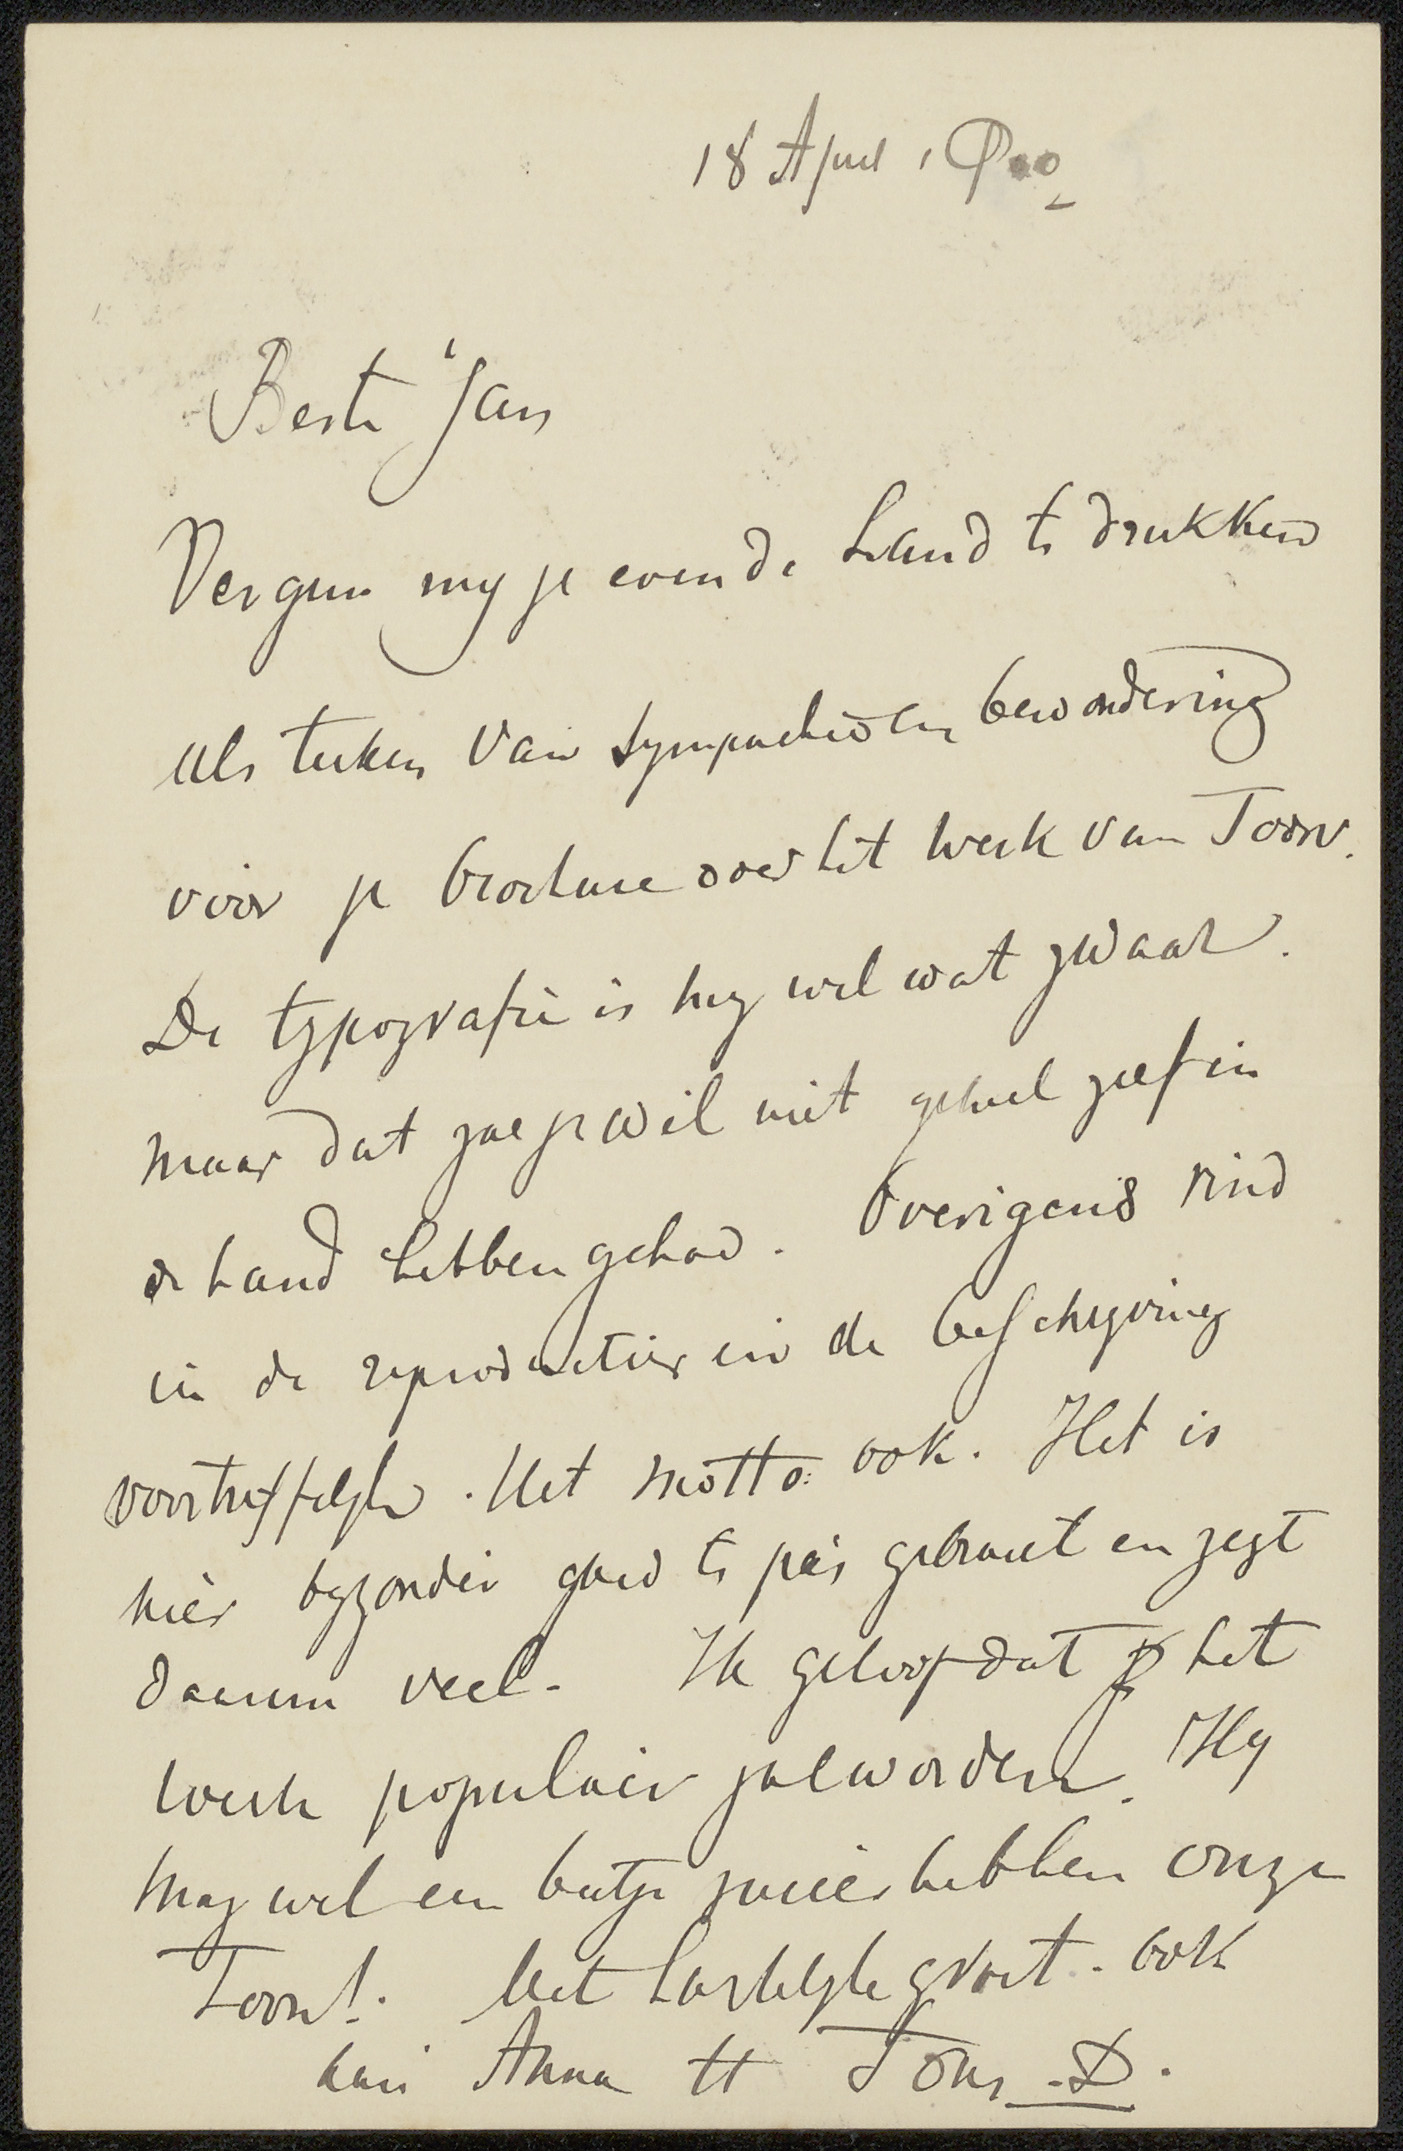 18 April 1900
Beste Jan
Vergun my je even de hand te drukken
als teeken van sympathie en bewondering
voor je brochure over het werk van Toorop.
De typografie is my wel wat zwaar.
maar dat zal je wel niet geheel zelf in
de hand hebben gehad. Overigens vind
ik de reproducties en de beschryving
voortreffelyk. Het motto ook. Het is
hier byzonder goed te pas gebracht en zegt
daarom veel. Ik geloof dat het
werk populair zal worden. Hy
mag wel een beetje plezier hebben onze
Toon!. Met hartelyke groet. ook
aan Anna tt Tony D.